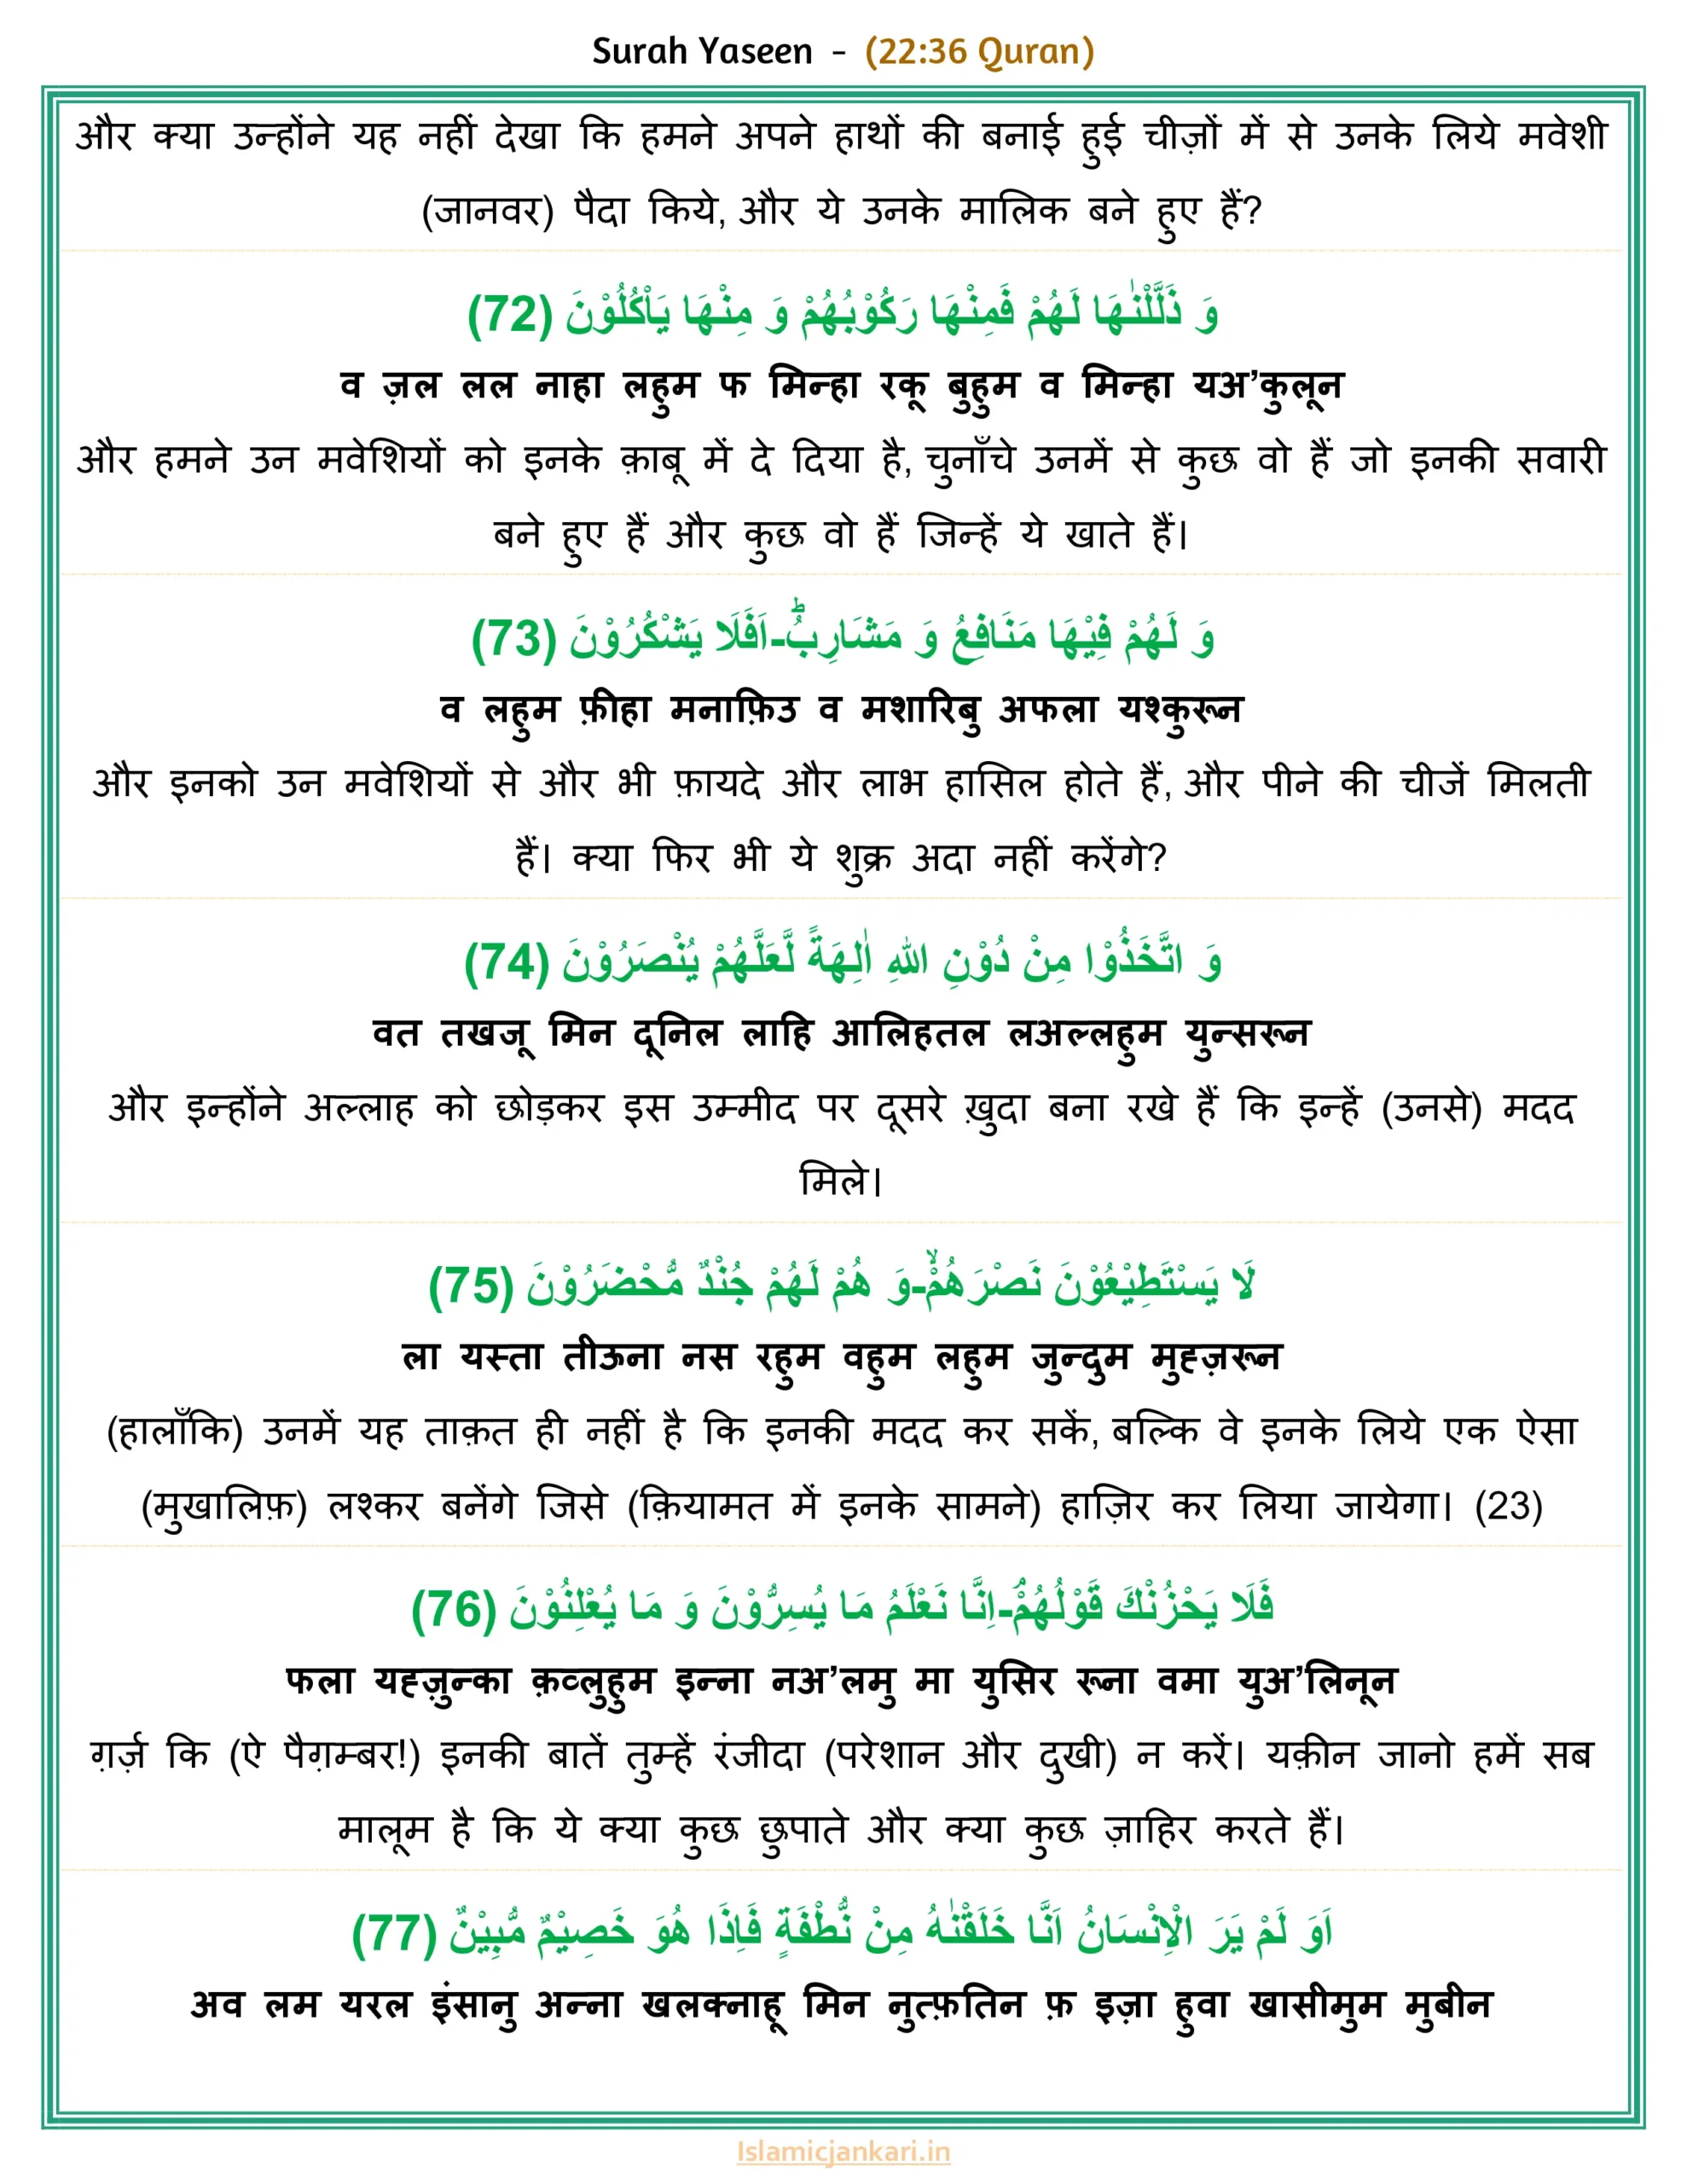 Surah Yaseen - (22:36 Quran)
और क्या उन्होंने यह नहीं देखा कि हमने अपने हाथों की बनाई हुई चीज़ों में से उनके लिये मवेशी
(जानवर) पैदा किये, और ये उनके मालिक बने हुए हैं?
وَ ذَلَّلْنٰهَا لَهُمْ فَمِنْهَا رَكُوْبُهُمْ وَ مِنْهَا یَاْكُلُوْنَ (72)
व ज़ल लल नाहा लहुम फ मिन्हा रकू बुहुम व मिन्हा यअ’कुलून
और हमने उन मवेशियों को इनके क़ाबू में दे दिया है, चुनाँचे उनमें से कुछ वो हैं जो इनकी सवारी
बने हुए हैं और कुछ वो हैं जिन्हें ये खाते हैं।
وَ لَهُمْ فِیْهَا مَنَافِعُ وَ مَشَارِبُؕ-اَفَلَا یَشْكُرُوْنَ (73)
व लहुम फ़ीहा मनाफ़िउ व मशारिबु अफला यश्कुरून
और इनको उन मवेशियों से और भी फ़ायदे और लाभ हासिल होते हैं, और पीने की चीजें मिलती
हैं। क्या फिर भी ये शुक्र अदा नहीं करेंगे?
وَ اتَّخَذُوْا مِنْ دُوْنِ اللّٰهِ اٰلِهَةً لَّعَلَّهُمْ یُنْصَرُوْنَ (74)
वत तखजू मिन दूनिल लाहि आलिहतल लअल्लहुम युन्सरून
और इन्होंने अल्लाह को छोड़कर इस उम्मीद पर दूसरे ख़ुदा बना रखे हैं कि इन्हें (उनसे) मदद
मिले।
لَا یَسْتَطِیْعُوْنَ نَصْرَهُمْۙ-وَ هُمْ لَهُمْ جُنْدٌ مُّحْضَرُوْنَ (75)
ला यस्ता तीऊना नस रहुम वहुम लहुम जुन्दुम मुह्ज़रून
(हालाँकि) उनमें यह ताक़त ही नहीं है कि इनकी मदद कर सकें, बल्कि वे इनके लिये एक ऐसा
(मुखालिफ़) लश्कर बनेंगे जिसे (क़ियामत में इनके सामने) हाज़िर कर लिया जायेगा। (23)
فَلَا یَحْزُنْكَ قَوْلُهُمْۘ-اِنَّا نَعْلَمُ مَا یُسِرُّوْنَ وَ مَا یُعْلِنُوْنَ (76)
फला यह्ज़ुन्का क़व्लुहुम इन्ना नअ’लमु मा युसिर रूना वमा युअ’लिनून
ग़र्ज़ कि (ऐ पैग़म्बर!) इनकी बातें तुम्हें रंजीदा (परेशान और दुखी) न करें। यक़ीन जानो हमें सब
मालूम है कि ये क्या कुछ छुपाते और क्या कुछ ज़ाहिर करते हैं।
اَوَ لَمْ یَرَ الْاِنْسَانُ اَنَّا خَلَقْنٰهُ مِنْ نُّطْفَةٍ فَاِذَا هُوَ خَصِیْمٌ مُّبِیْنٌ (77)
अव लम यरल इंसानु अन्ना खलक्नाहू मिन नुत्फ़तिन फ़ इज़ा हुवा खासीमुम मुबीन
Islamicjankari.in